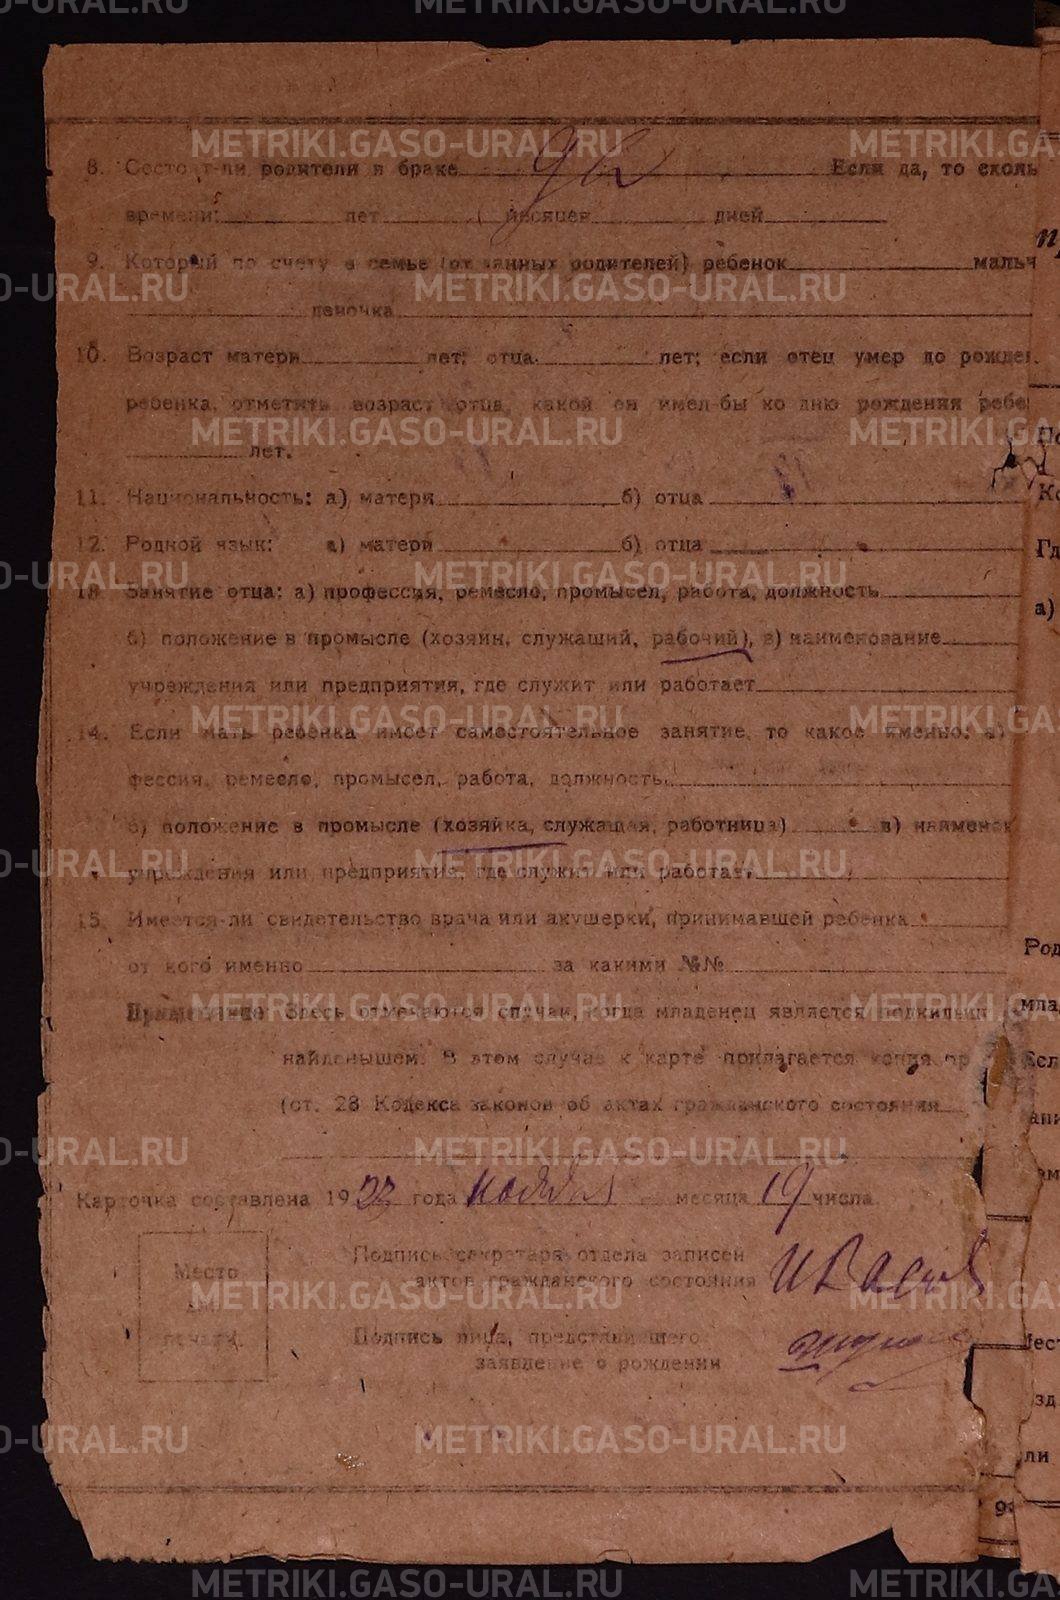 8. Состоят-ли родители в браке да Если да, то сколь
времени: лет месяцев дней
9. Который по счету в семье (от данных родителей) ребенок мальч
девочка
10. Возраст матери лет; отца лет; если отец умер до рожден
ребенка, отметить возраст отца, какой он имел-бы ко дню рождения ребе
лет.
11. Национальность: а) матери б) отца
12. Родной язык: а) матери б) отца
13. Занятие отца: а) профессия, ремесло, промысел, работа, должность
б) положение в промысле (хозяин, служащий, рабочий), в) наименование
учреждения или предприятия, где служит или работает
14. Если мать ребенка имеет самостоятельное занятие, то какое именно: а)
фессия, ремесло, промысел, работа, должность
б) положение в промысле (хозяйка, служащая, работница) в) наименов
учреждения или предприятия, где служит или работает
15. Имеется-ли свидетельство врача или акушерки, принимавшей ребенка
от кого именно за какими №№
Примечание Здесь отмечаются случаи, когда младенец является подкидыш
найденышем. В этом случае к карте прилагается копия пр
(ст. 28 Кодекса законов об актах гражданского состояния
Карточка составлена 1922 года ноября месяца 19 числа.
Место
для
печати.
Подпись секретаря отдела записей
актов гражданского состояния
Подпись лица, представившего
заявление о рождении
METRIKI.GASO-URAL.RU